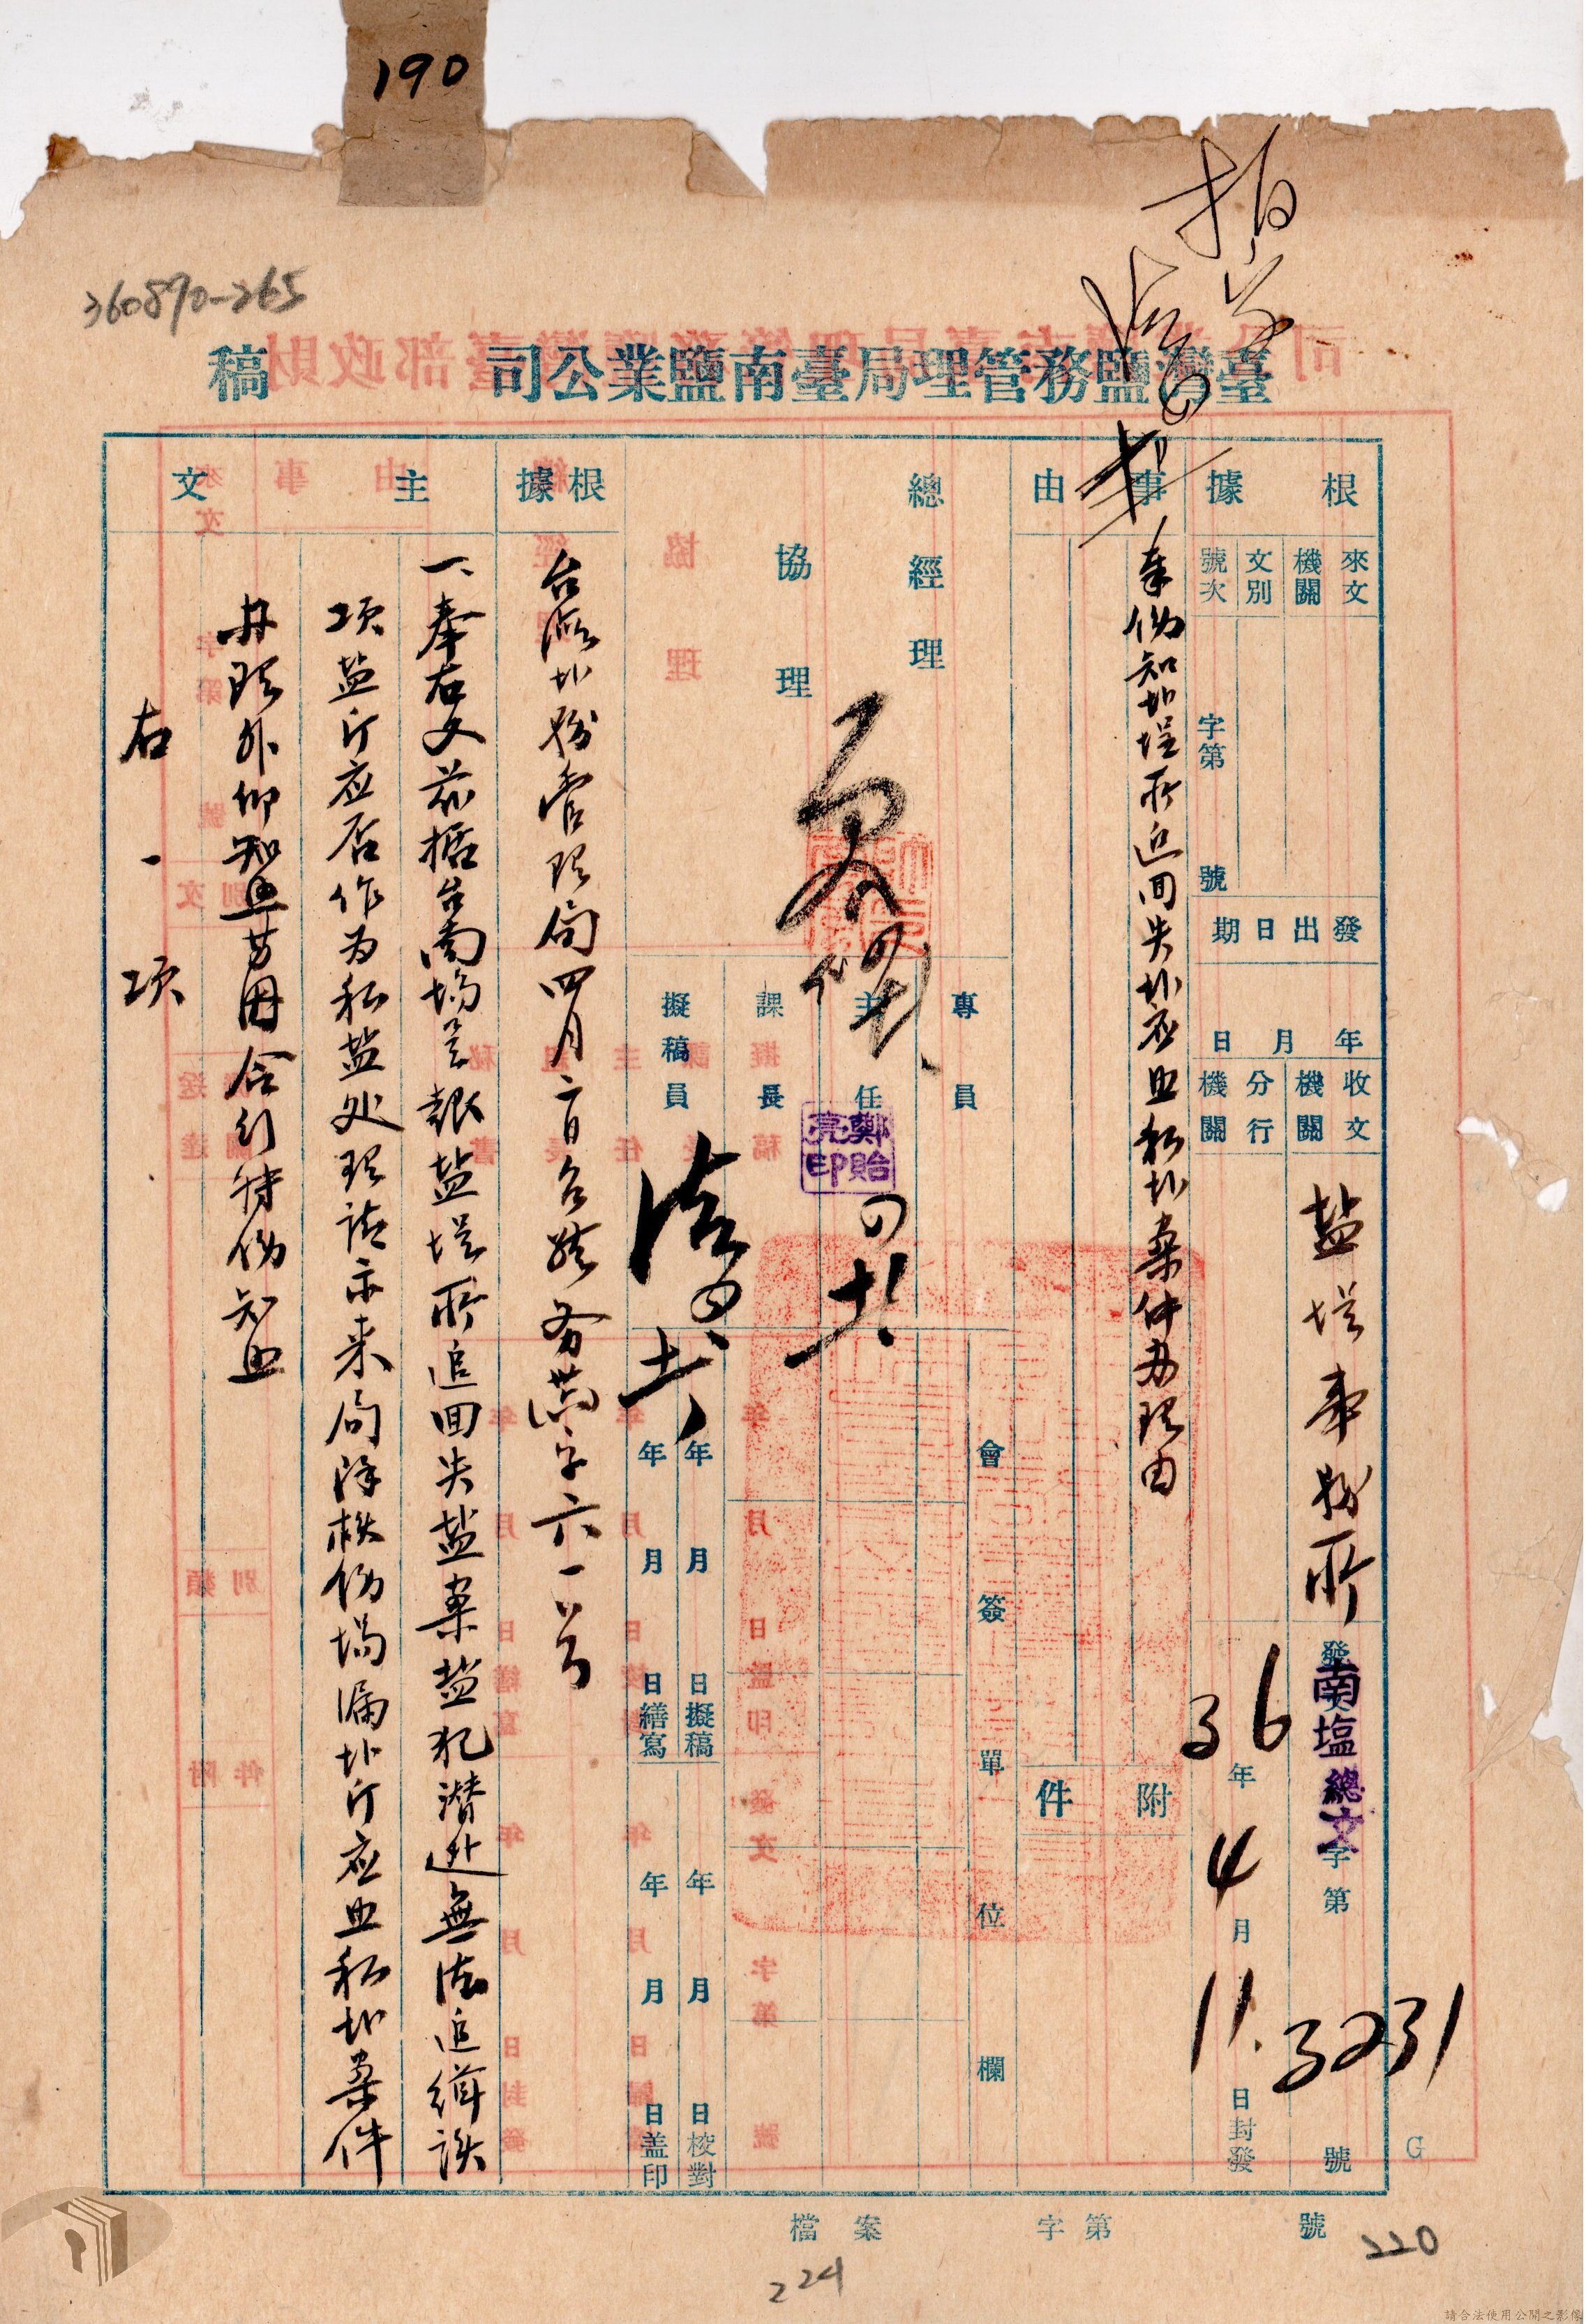 190
360890-265
臺灣鹽務管理局臺南鹽業公司 稿
根據
來文機關
文別
號次
字第 號
發出日期
年 月 日
收文機關
分行機關
盐埕事務所
發 南塩總文 字第 3231 號
36年4月11日封發
事由
奉飭知盐埕所追回失盐应照私盐案件办理由
附件
總經理
協理
專員
主任
鄭貽亮印
課長
擬稿員
會簽單位欄
年 月 日擬稿
年 月 日繕寫
年 月 日校對
年 月 日蓋印
根據
台湾盐務管理局四月二日
字六一 号
主文
一、奉右文茲據台南場呈報盐埕所追回失盐案盐犯潜逃無法追緝該
項盐斤应否作为私盐处理請示来局除核飭場漏盐斤应照私盐案件
办理外仰知照等因合行轉飭知照
右一項
檔案 字第 號
220
224
G
請合法使用公開之影像